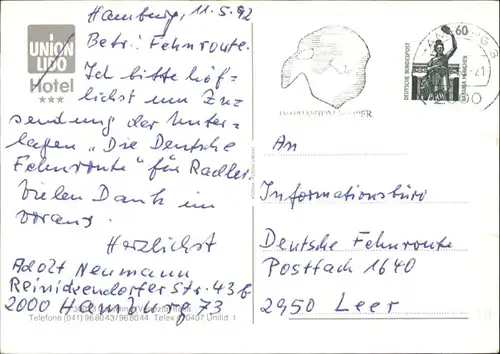 UNION
LIDO
Hotel
★★★
Hamburg, 11.5.92
Betr.: Fehnroute.
Ich bitte höf-
lichst um Zu-
sendung der Unter-
lagen "Die Deutsche
Fehnroute" für Radler
Vielen Dank im
voraus.
Herzlichst
Adolf Neumann
Reinickendorfer Str. 43b
2000 Hamburg 73
Telefono (041) 968043/968044 Telex 420407 Unilid I
60
DEUTSCHE BUNDESPOST
BAVARIA MÜNCHEN
An
Informationsbüro
Deutsche Fehnroute
Postfach 1640
2950 Leer